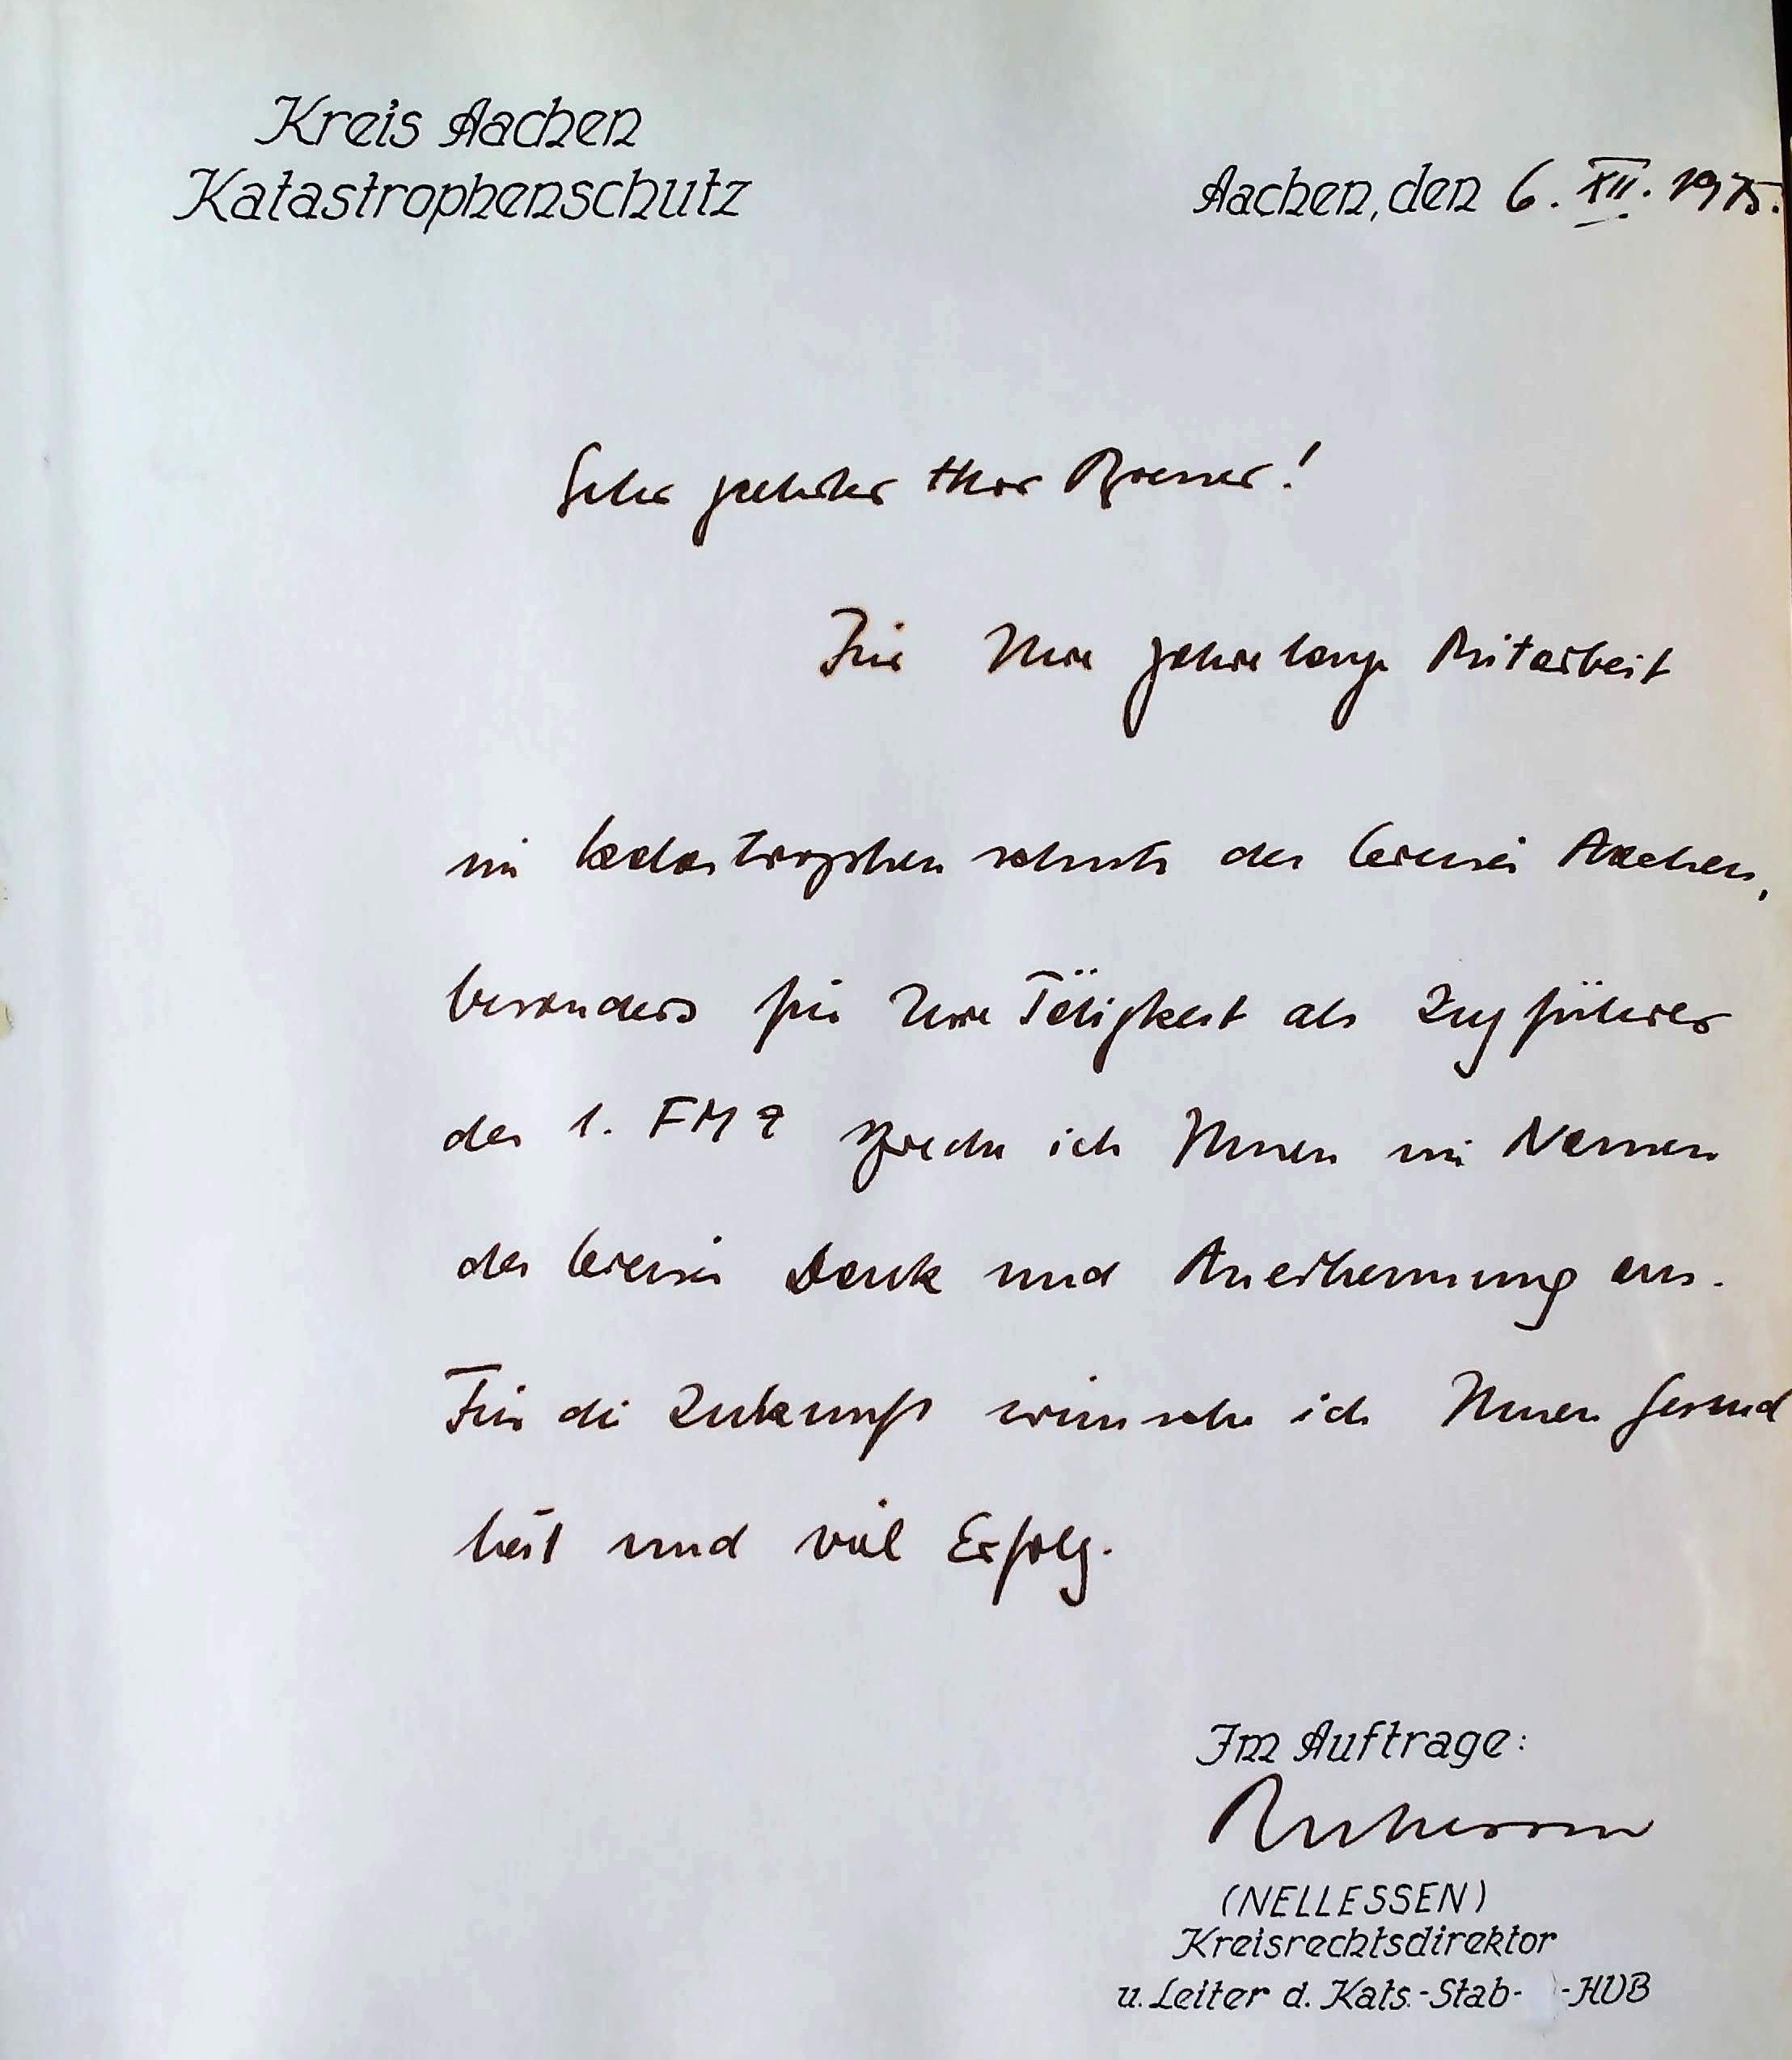 Kreis Aachen
Katastrophenschutz
Aachen, den 6. XII. 1975.
Sehr geehrter Herr Bremer!
Für Ihre jahrelange Mitarbeit
im Katastrophenschutz des Kreises Aachen,
besonders für Ihre Tätigkeit als Zugführer
des 1. FMZ spreche ich Ihnen im Namen
des Kreises Dank und Anerkennung aus.
Für die Zukunft wünsche ich Ihnen Gesund
heit und viel Erfolg.
Im Auftrage:
(NELLESSEN)
Kreisrechtsdirektor
u. Leiter d. Kats.-Stab- -HVB